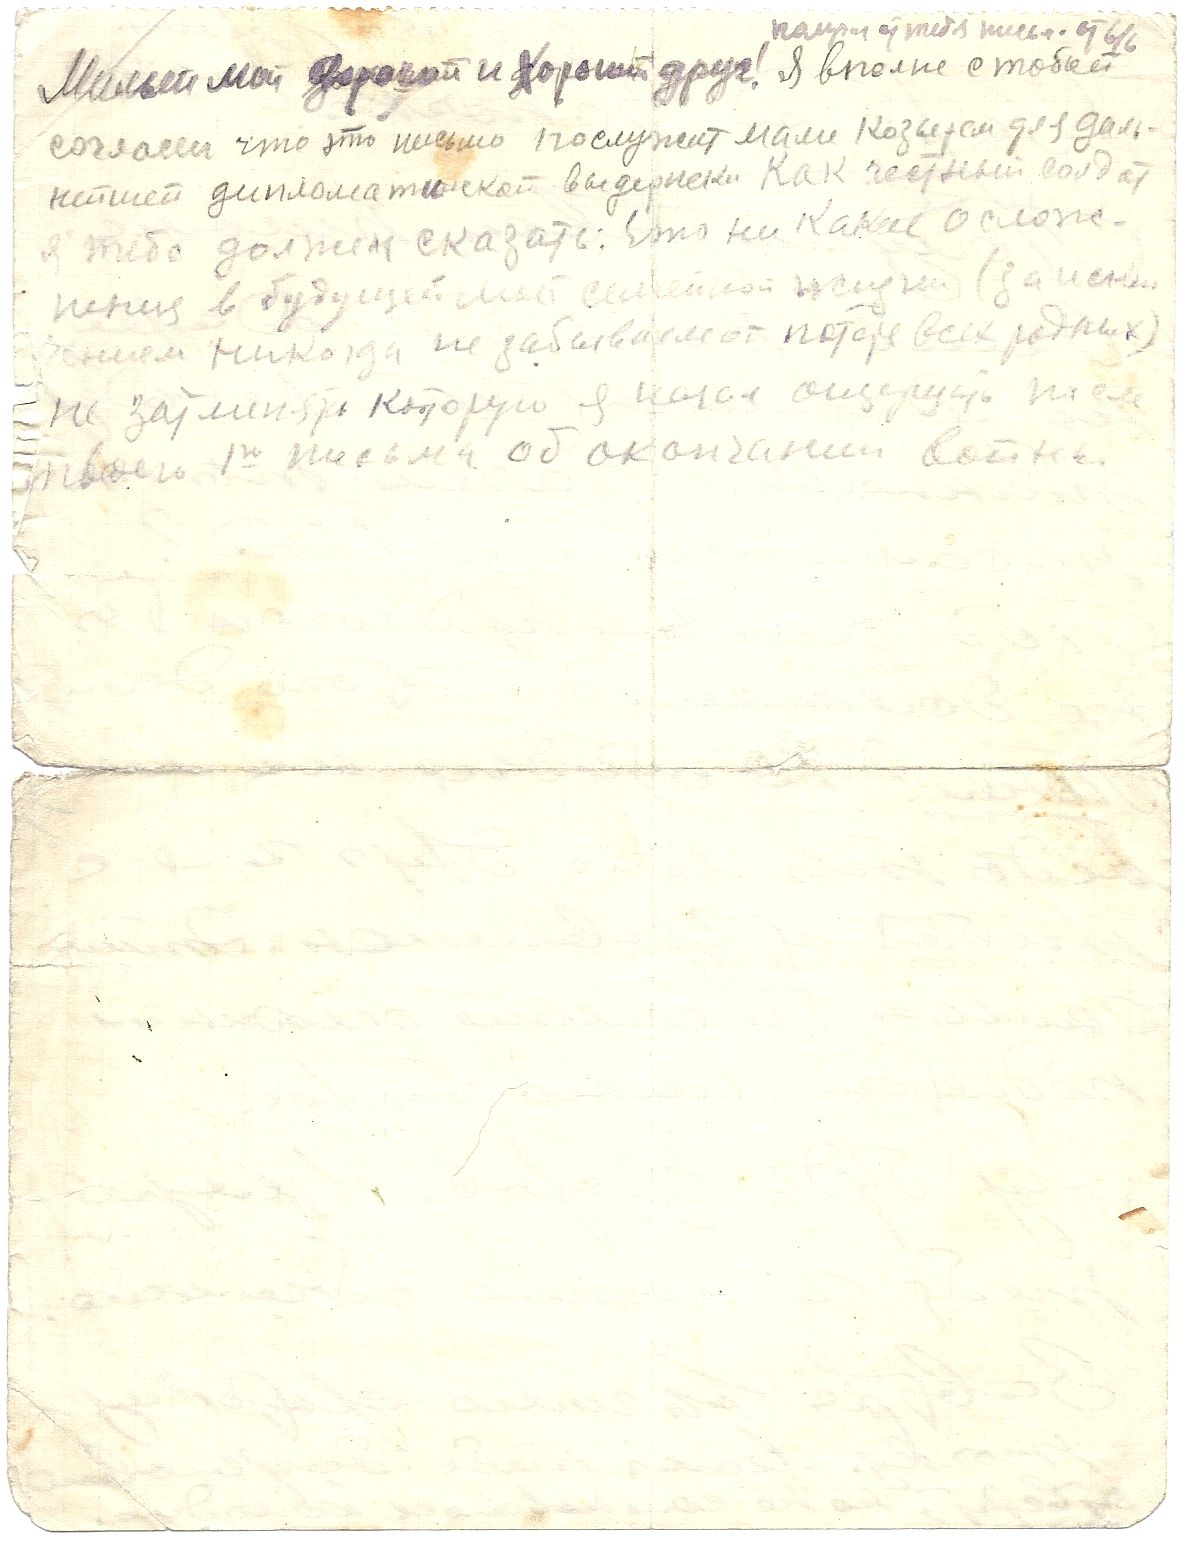 получил от тебя письм. от 6/6
Милый мой дорогой и хороший друг! Я вполне с тобой
согласен что это письмо послужит маме козырем для даль-
нейшей дипломатической выдержки Как честный солдат
я тебе должен сказать: Что ни какие ослож-
нения в будущей моей семейной жизни (за исклю
чением никогда не забываемой потере всех родных)
не затменять которую я начал ощущать после
твоего 1го письма об окончании войны